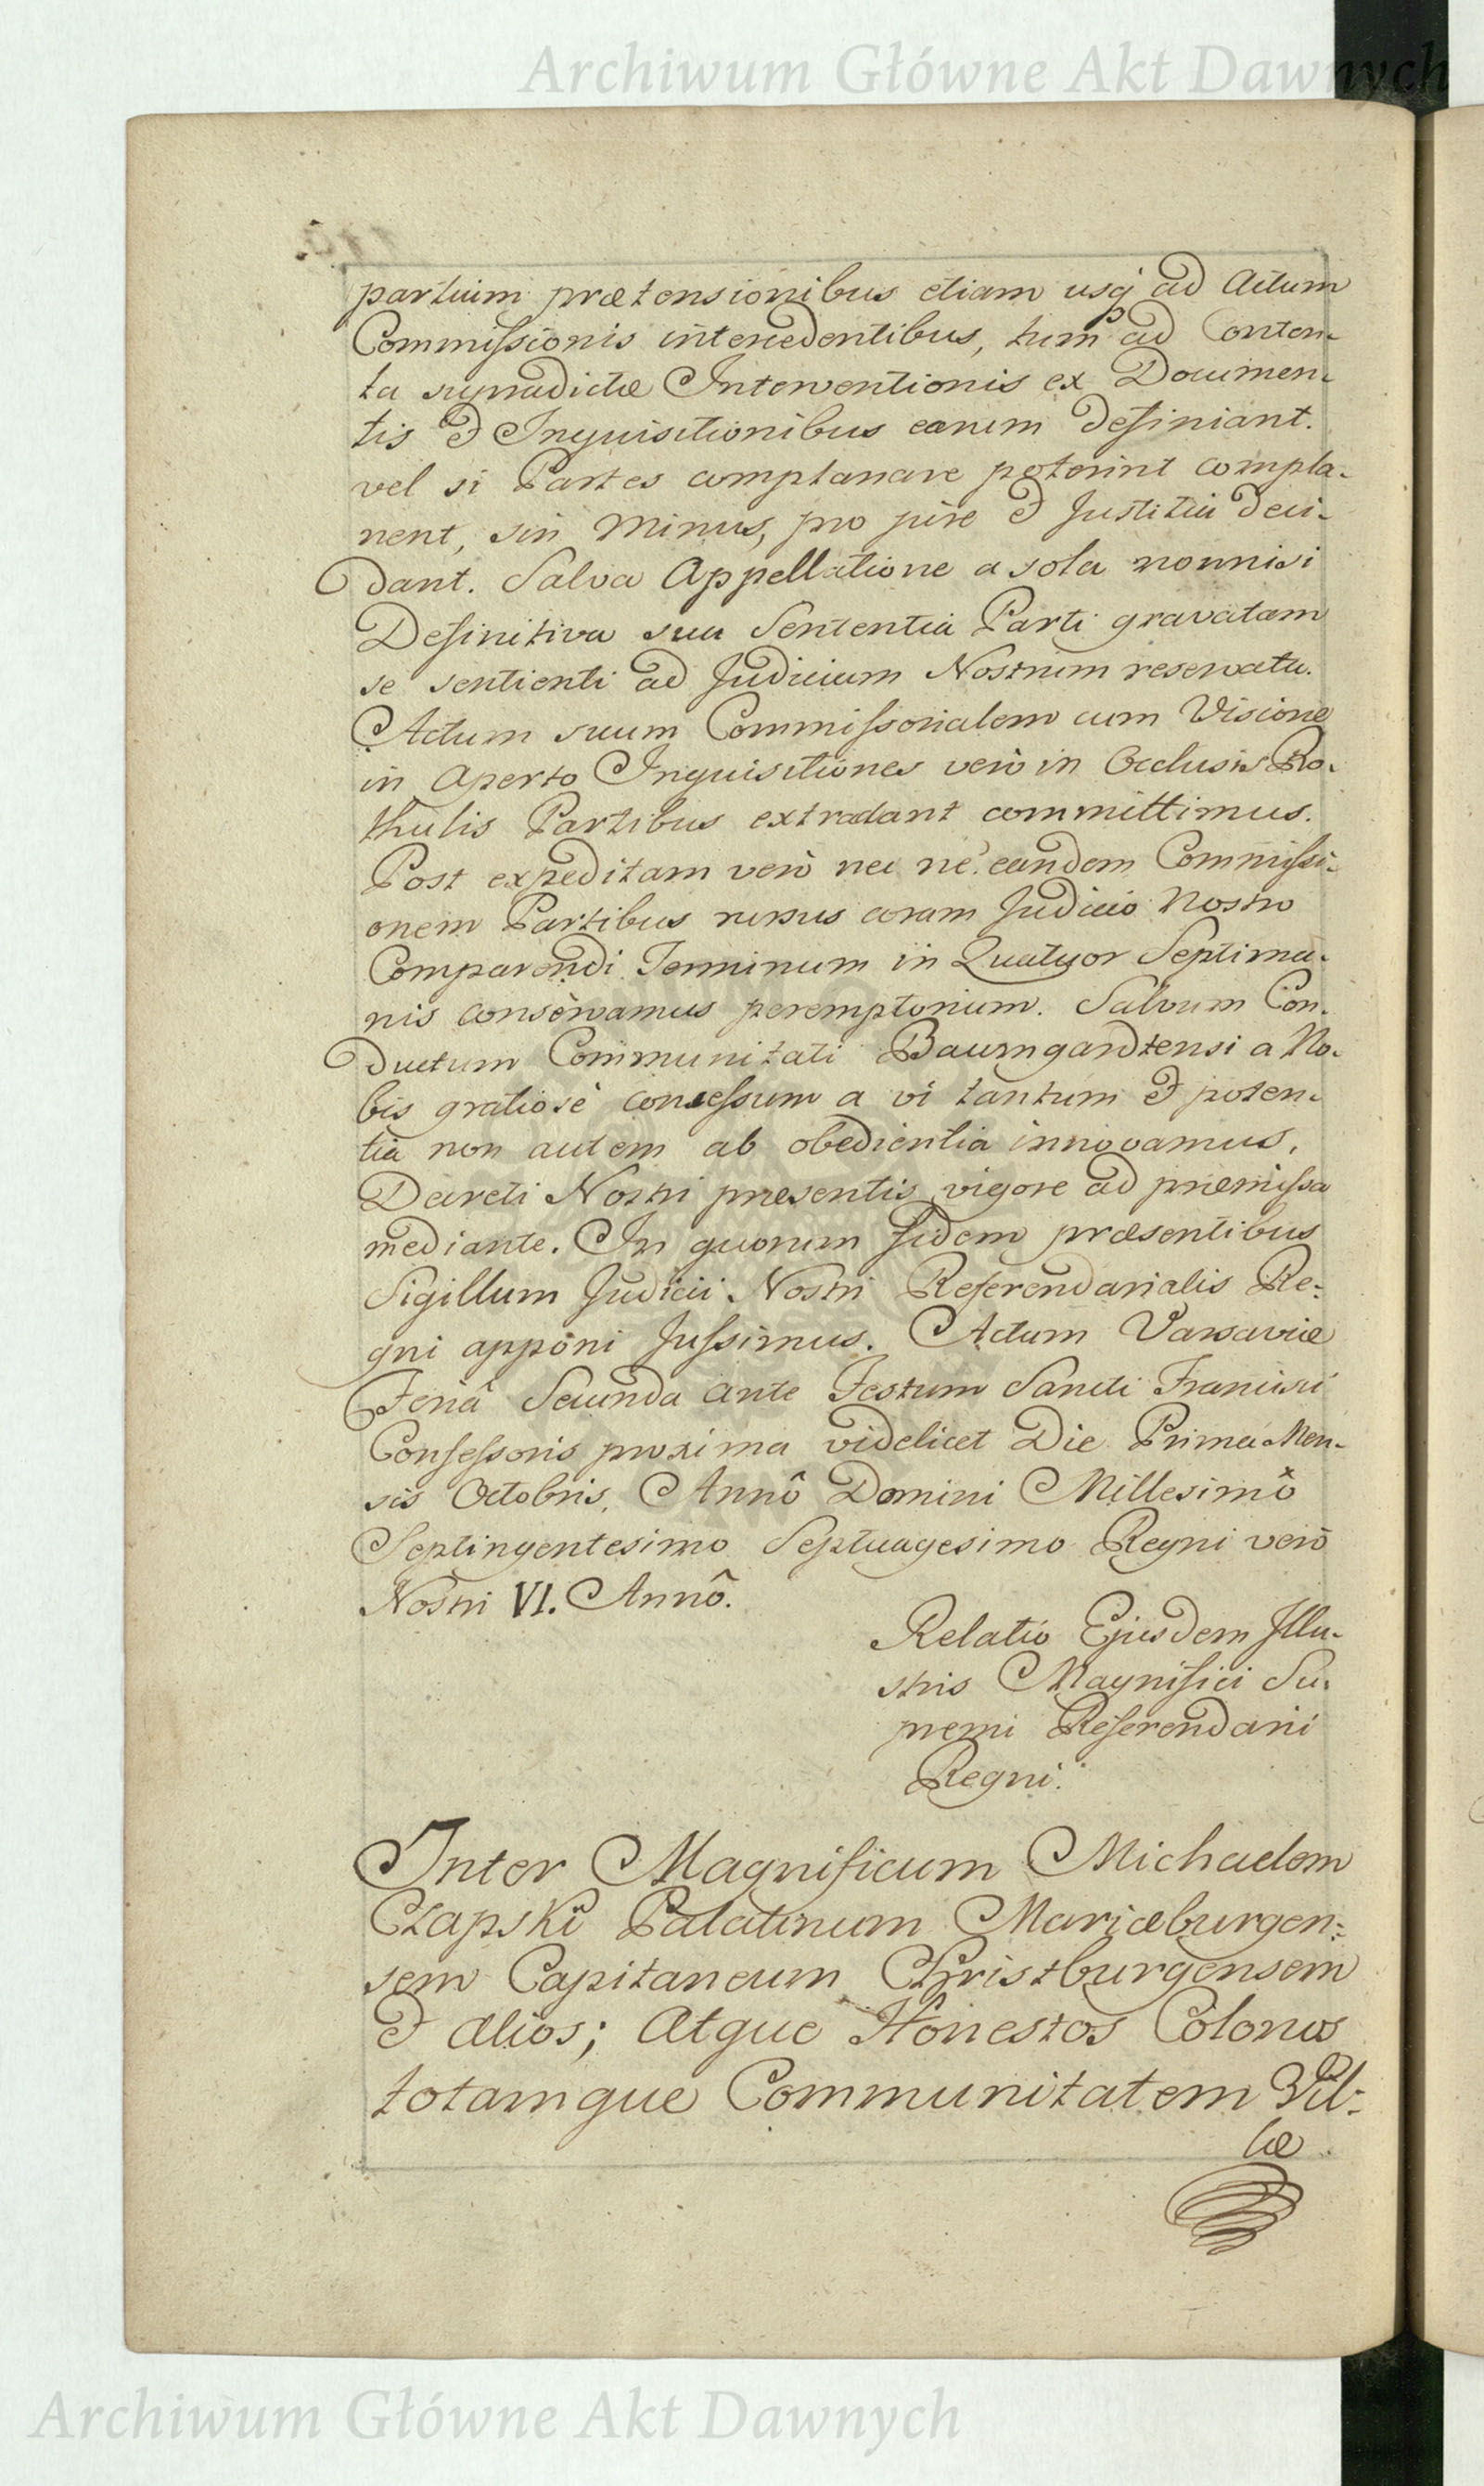 Archiwum Główne Akt Dawnych
partium prætensionibus etiam usq́ ad Actum
Commissionis intercedentibus, tum ad Conten-
ta supradictæ Interventionis ex Documen-
tis & Inquisitionibus earum definiant.
vel si Partes complanare poterint compla-
nent, sin minus, pro jure & Justitia deci-
dant. Salva Appellatione a sola nonnisi
Definitiva sua Sententia Parti gravatam
se sentienti ad Judicium Nostrum reservata.
Actum suum Commissorialem cum Visione
in Aperto Inquisitiones verò in Occlusis Ro-
thulis Partibus extradant committimus.
Post expeditam verò nec ne eandem Commissi-
onem Partibus rursus coram Judicio Nostro
Comparendi Terminum in Quatuor Septima-
nis conservamus peremptorium. Salvum Con-
ductum Communitati Baumgardtensi a No-
bis gratiosè concessum a vi tantum & poten-
tia non autem ab obedientia innovamus,
Decreti Nostri præsentis vigore ad præmissa
mediante. In quorum fidem præsentibus
Sigillum Judicii Nostri Referendarialis Re-
gni apponi Jussimus. Actum Varsaviæ
Feriâ Secunda ante Festum Sancti Francisci
Confessoris proxima videlicet Die Prima Men-
sis Octobris, Annô Domini Millesimô
Septingentesimo Septuagesimo Regni verò
Nostri VI. Annô.
Relatio Ejusdem Illu-
stris Magnifici Su-
premi Referendarii
Regni.
Inter Magnificum Michaelem
Czapski Palatinum Mariæburgen-
sem Capitaneum Christburgensem
& Alios; Atque Honestos Colonos
totamque Communitatem Vil-
læ
Archiwum Główne Akt Dawnych